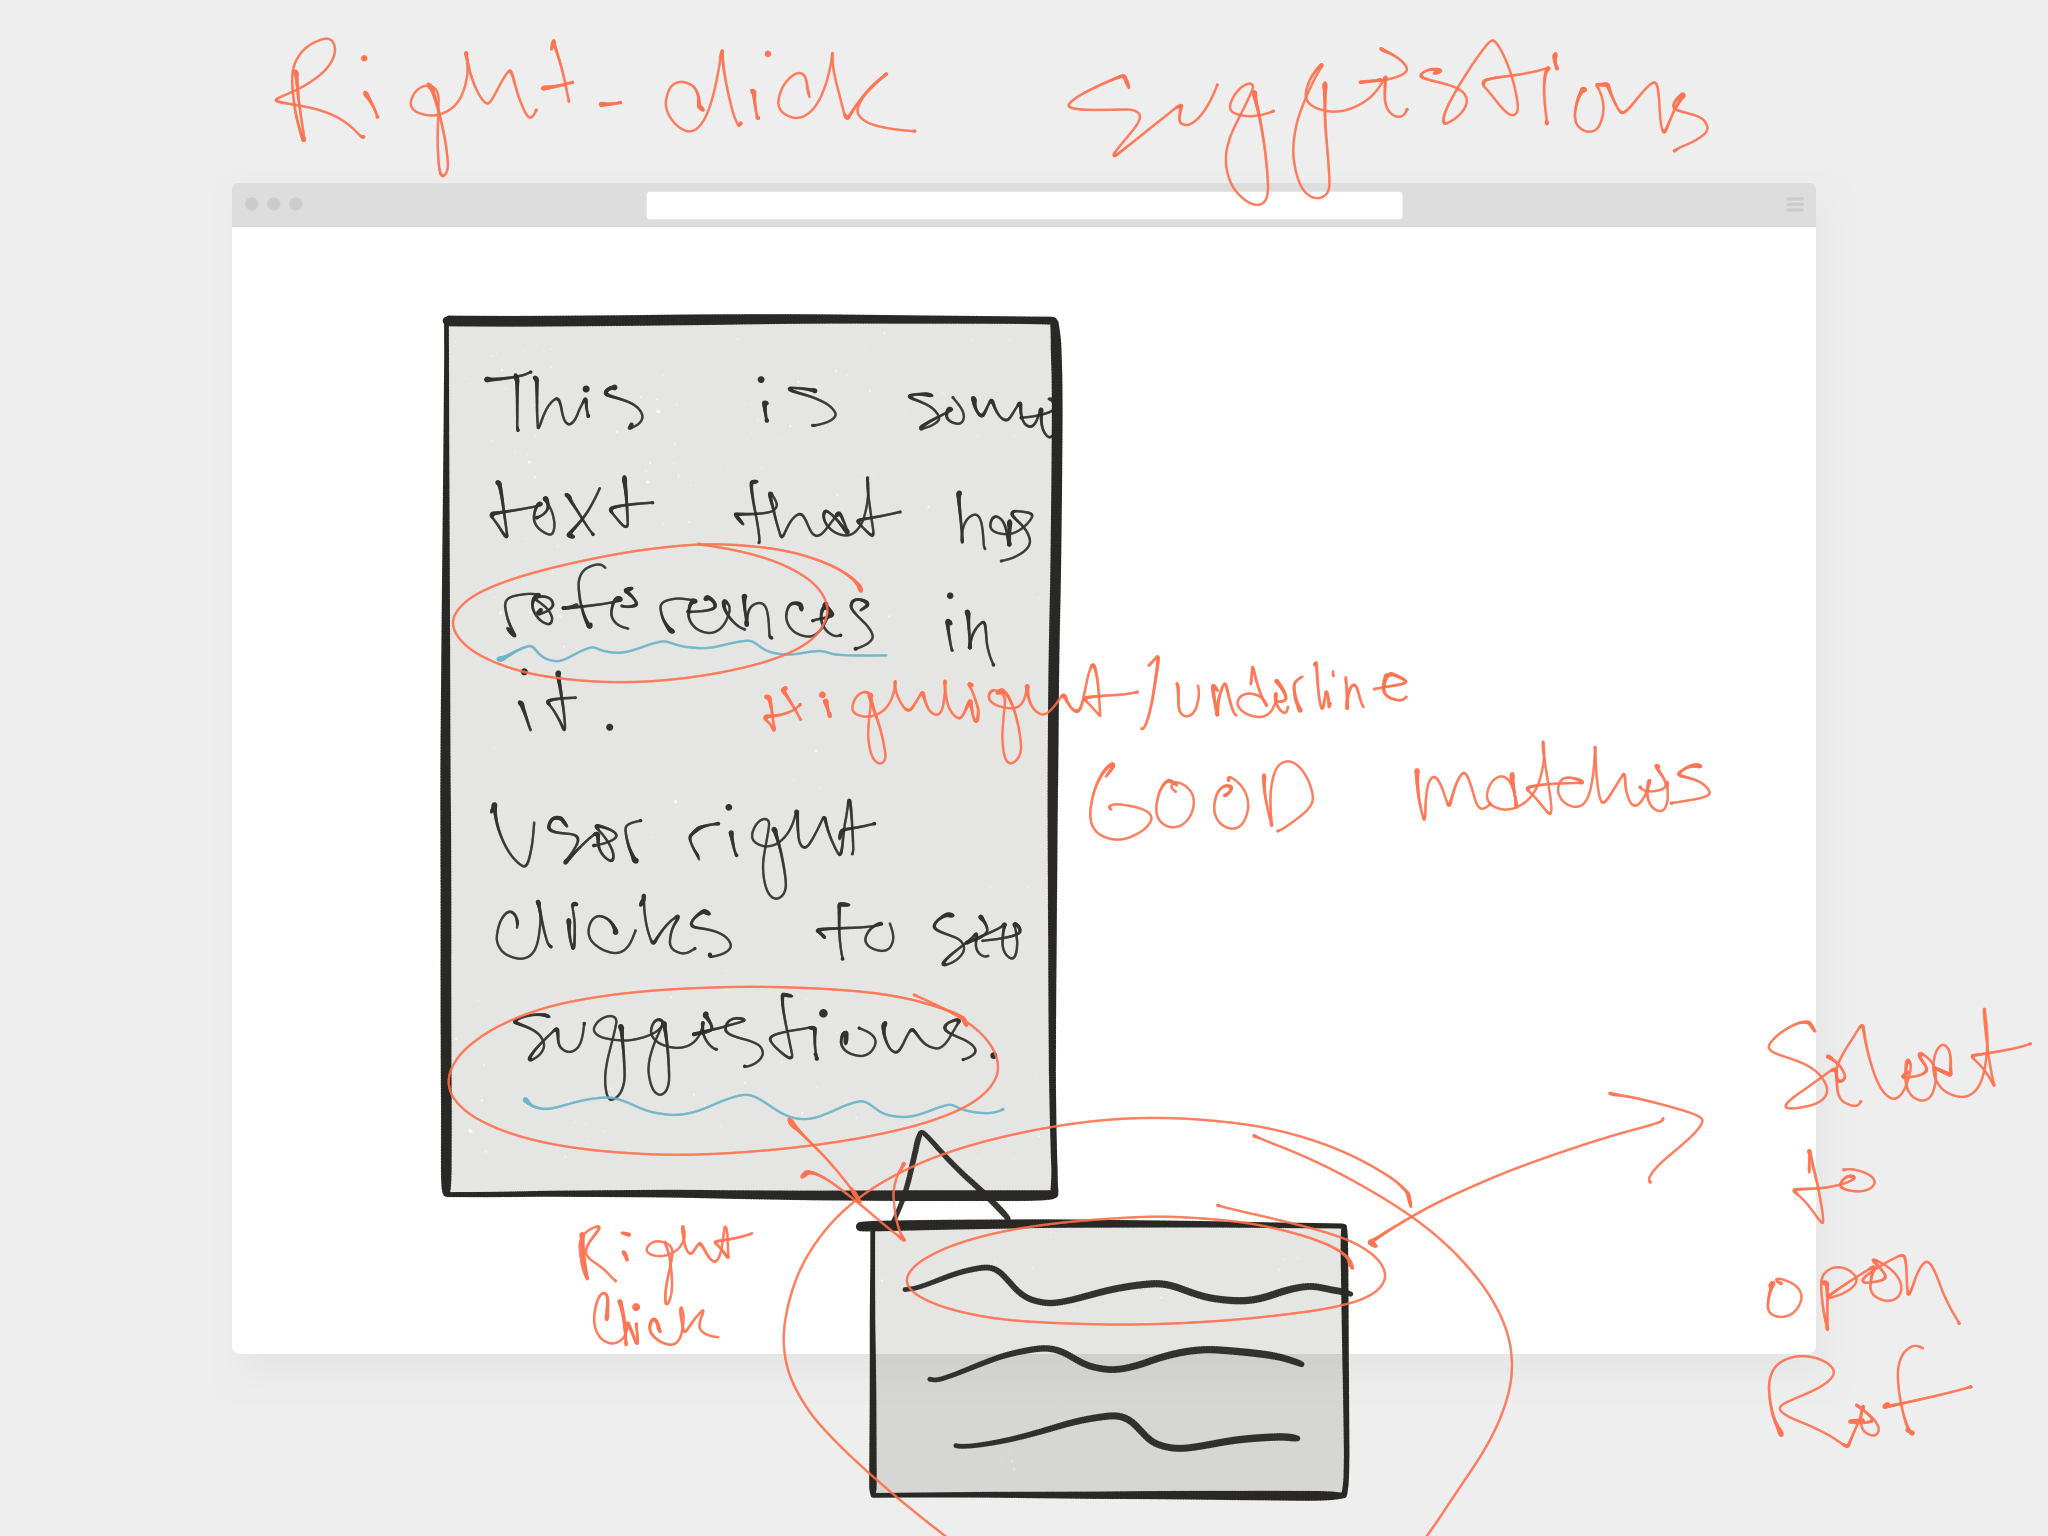 Right-click suggestions
This is some
text that has
references in
it.
Highlight/underline
GOOD matches
User right
clicks to see
suggestions.
Right
Click
Select
to
open
Ref